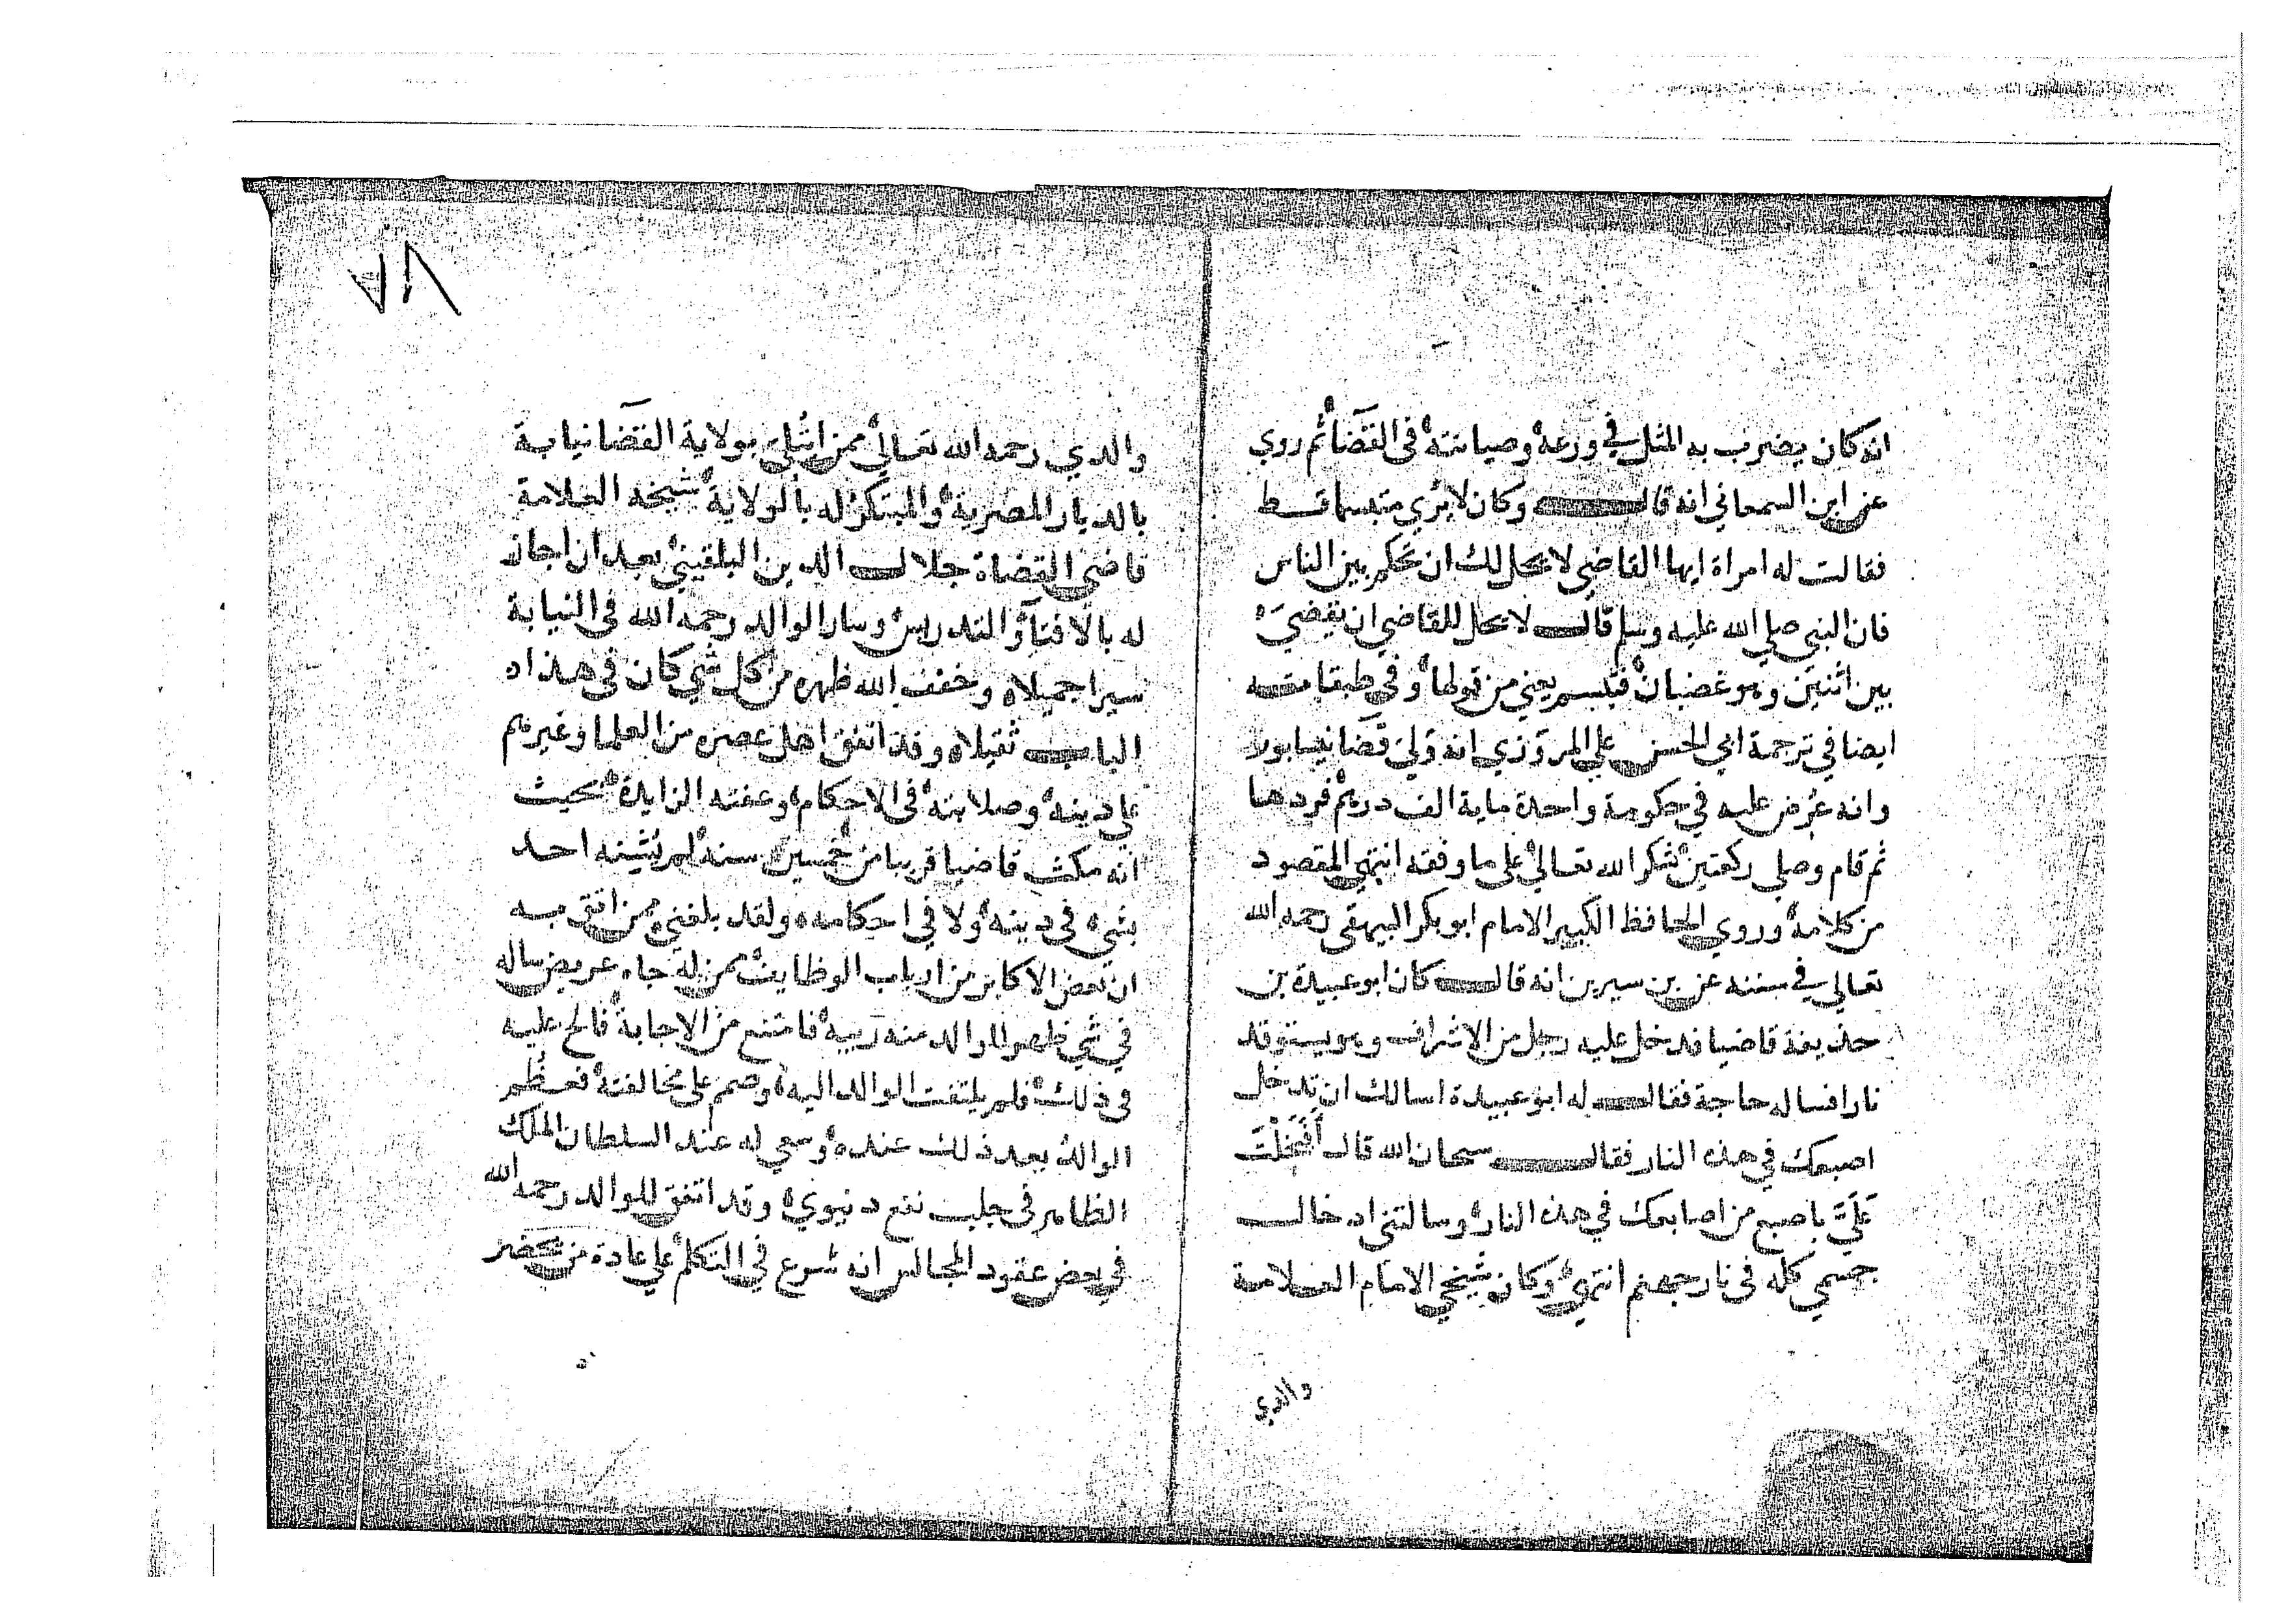 انه كان يضرب به المثل في ورعه وصيانته في القضا ثم روي
عن ابن السمعاني انه قال وكان لا يري متبسما قط
فقالت له امراة ايها القاضي لا يحل لك ان تحكم بين الناس
فان النبي صلي الله عليه وسلم قال لا يحل للقاضي ان يقضي
بين اثنين وهو غضبان فتبسم يعني من قولها وفي طبقاته
ايضا في ترجمة ابي الحسن علي المروزي انه ولي قضا نيسابور
وانه عرض عليه في حكومة واحدة ماية الف درهم فردها
ثم قام وصلي ركعتين شكر الله تعالي علي ما وفقه انتهي المقصود
من كلامه وروي الحافظ الكبير الامام ابو بكر البيهقي رحمه الله
تعالي في سننه عن بن سيرين انه قال كان ابو عبيدة بن
حذيفة قاضيا فدخل عليه رجل من الاشراف وهو يستوقد
نارا فساله حاجة فقال له ابو عبيدة اسالك ان تدخل
اصبعك في هذه النار فقال سبحان الله قال أفبخلت
علي باصبع من اصابعك في هذه النار وسالتني ادخال
جسمي كله في نار جهنم انتهي وكان شيخي الامام العلامة
والدي
٧٨
والدي رحمه الله تعالي ممن ابتلي بولاية القضا نيابة
بالديار المصرية والمبتكر له بالولاية شيخه العلامة
قاضي القضاة جلال الدين البلقيني بعد ان اجاز
له بالافتاء والتدريس وسار الوالد رحمه الله في النيابة
سيرا جميلا وخفف الله ظهره من كل شي كان في هذا
الباب ثقيلا وقد اتفق اهل عصره من العلما وغيرهم
علي دينه وصلابته في الاحكام وعفته الزايدة بحيث
انه مكث قاضيا قريبا من خمسين سنة لم يشنه احد
بشي في دينه ولا في احكامه ولقد بلغني ممن اثق به
ان بعض الاكابر من ارباب الوظايف ممن له جاه عريض ساله
في شي ظهر للوالد منه ريبه فامتنع من الاجابة فالح عليه
في ذلك فلم يلتفت الوالد اليه وصمم علي مخالفته فعظم
الوالد بعد ذلك عنده وسعي له عند السلطان الملك
الظاهر في جلب نفع دنيوي وقد اتفق للوالد رحمه الله
في بعض عقود المجالس انه شرع في التكلم علي عادة من يحضر